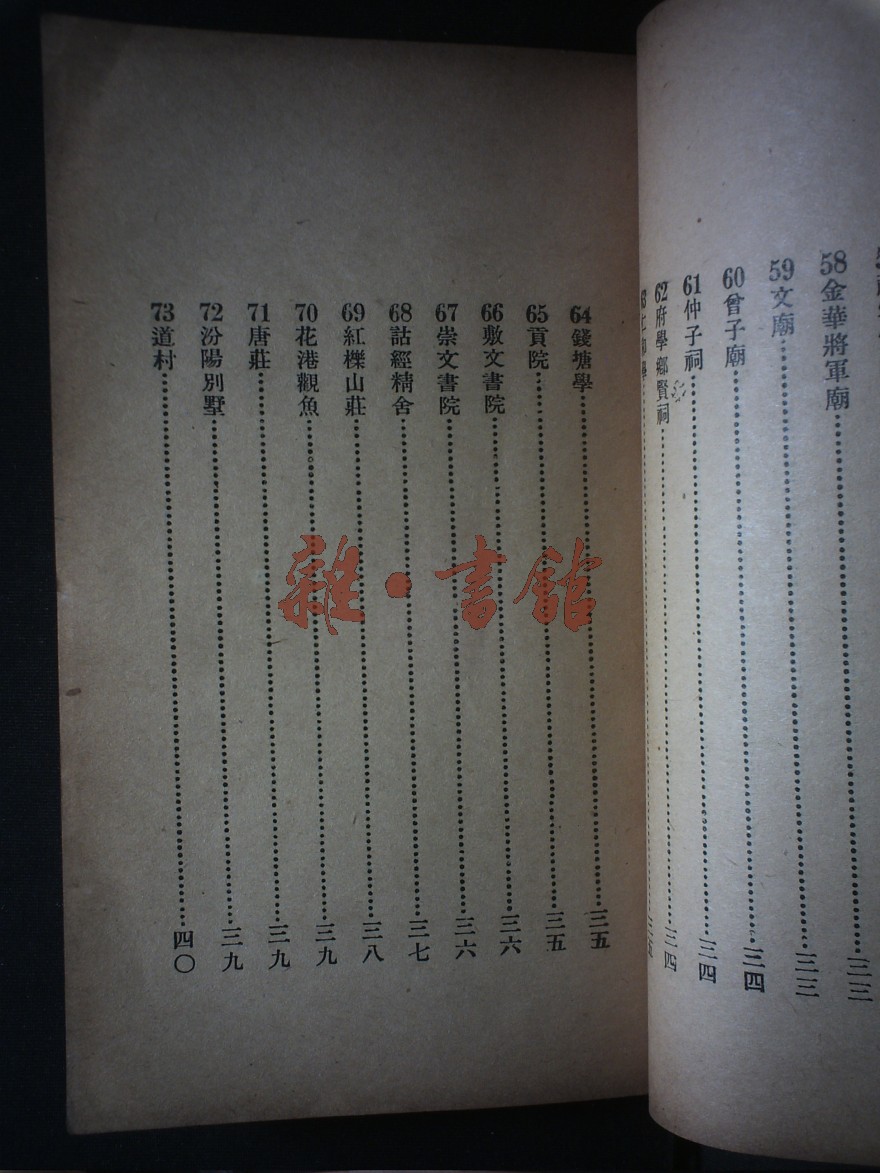 58金華將軍廟……三三
59文廟……三三
60曾子廟……三四
61仲子祠……三四
62府學鄉賢祠……三四
64錢塘學……三五
65貢院……三五
66敷文書院……三六
67崇文書院……三六
68詁經精舍……三七
69紅櫟山莊……三八
70花港觀魚……三九
71唐莊……三九
72汾陽別墅……三九
73道村……四〇
雜·書館